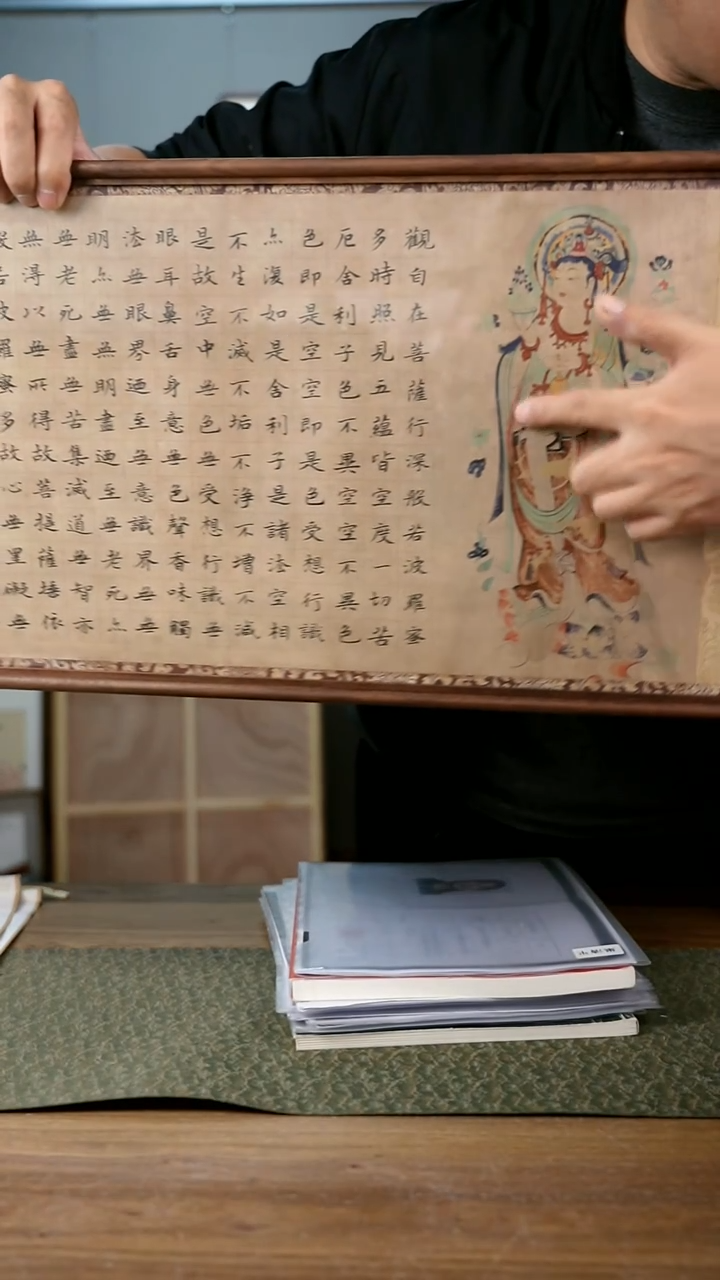 觀自在菩薩行深般若波羅蜜
多時照見五蘊皆空度一切苦
厄舍利子色不異空空不異色
色即是空空即是色受想行識
亦復如是舍利子是諸法空相
不生不滅不垢不淨不增不減
是故空中無色無受想行識無
眼耳鼻舌身意無色聲香味觸
法無眼界迺至無意識界無無
明亦無無明盡迺至無老死亦
無老死盡無苦集滅道無智亦
無得以無所得故菩提薩埵依
般若波羅蜜多故心無罣礙無